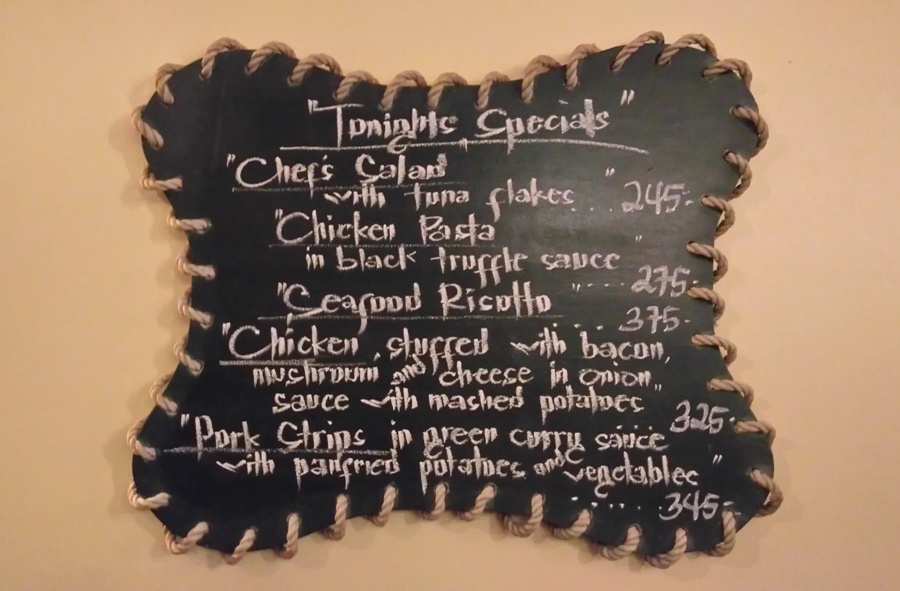 "Tonights Specials"
"Chef's Salad
with tuna flakes" .... 245.-
"Chicken Pasta
in black truffle sauce" .... 275.-
"Seafood Risotto" .... 375.-
"Chicken, stuffed with bacon,
mushroom and cheese in onion
sauce with mashed potatoes" ... 325.-
"Pork Strips in green curry sauce
with panfried potatoes and vegetables"
..... 345.-